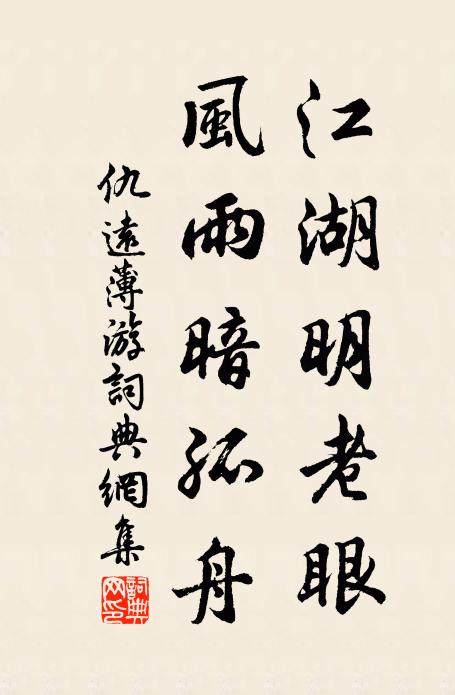 江湖明老眼
風雨暗孤舟
仇遠薄游詞典網集
詞典網印